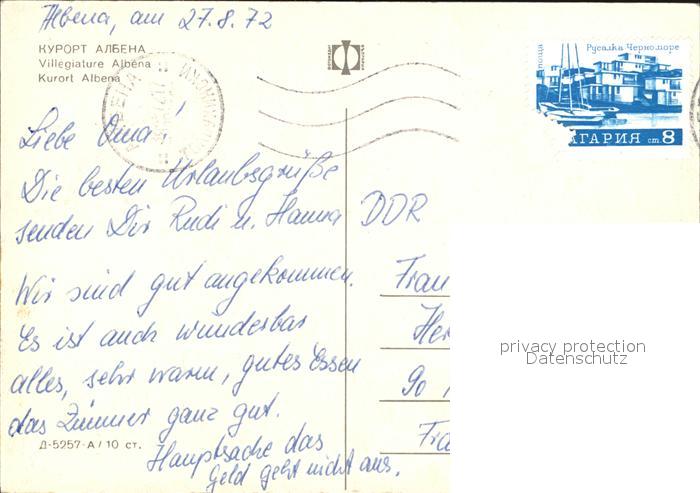 Albena, am 27.8.72
КУРОРТ АЛБЕНА
Villegiature Albéna
Kurort Albena
Русалка Черноморе
поща
ЛГАРИЯ ст. 8
Liebe Oma!
Die besten Urlaubsgrüße
senden Dir Rudi u. Hanna
DDR
Wir sind gut angekommen.
Es ist auch wunderbar
alles, sehr warm, gutes Essen
das Zimmer ganz gut.
Hauptsache das
Geld geht nicht aus.
Frau
Her
90
Fra
privacy protection
Datenschutz
Д-5257-А / 10 ст.